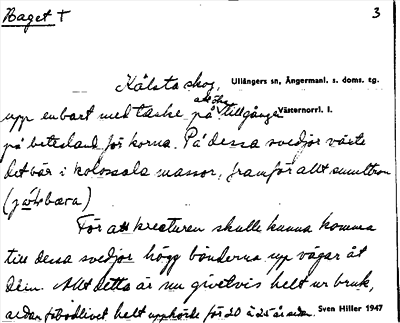 Haget † 3
Kålsta skog, Ullångers sn, Ångermanl. s. doms. tg.
att öka
upp enbart med tanke på tillgången Västernorrl. l.
på betesland för korna. På dessa svedjor växte
det bär i kolossala massor, framför allt smultron
(jålsbæra)
För att kreaturen skulle kunna komma
till dessa svedjor högg bönderna upp vägar åt
dem. Allt detta är nu givetvis helt ur bruk,
sedan fäbodlivet helt upphörde för 20 à 25 år sedan. Sven Hiller 1947